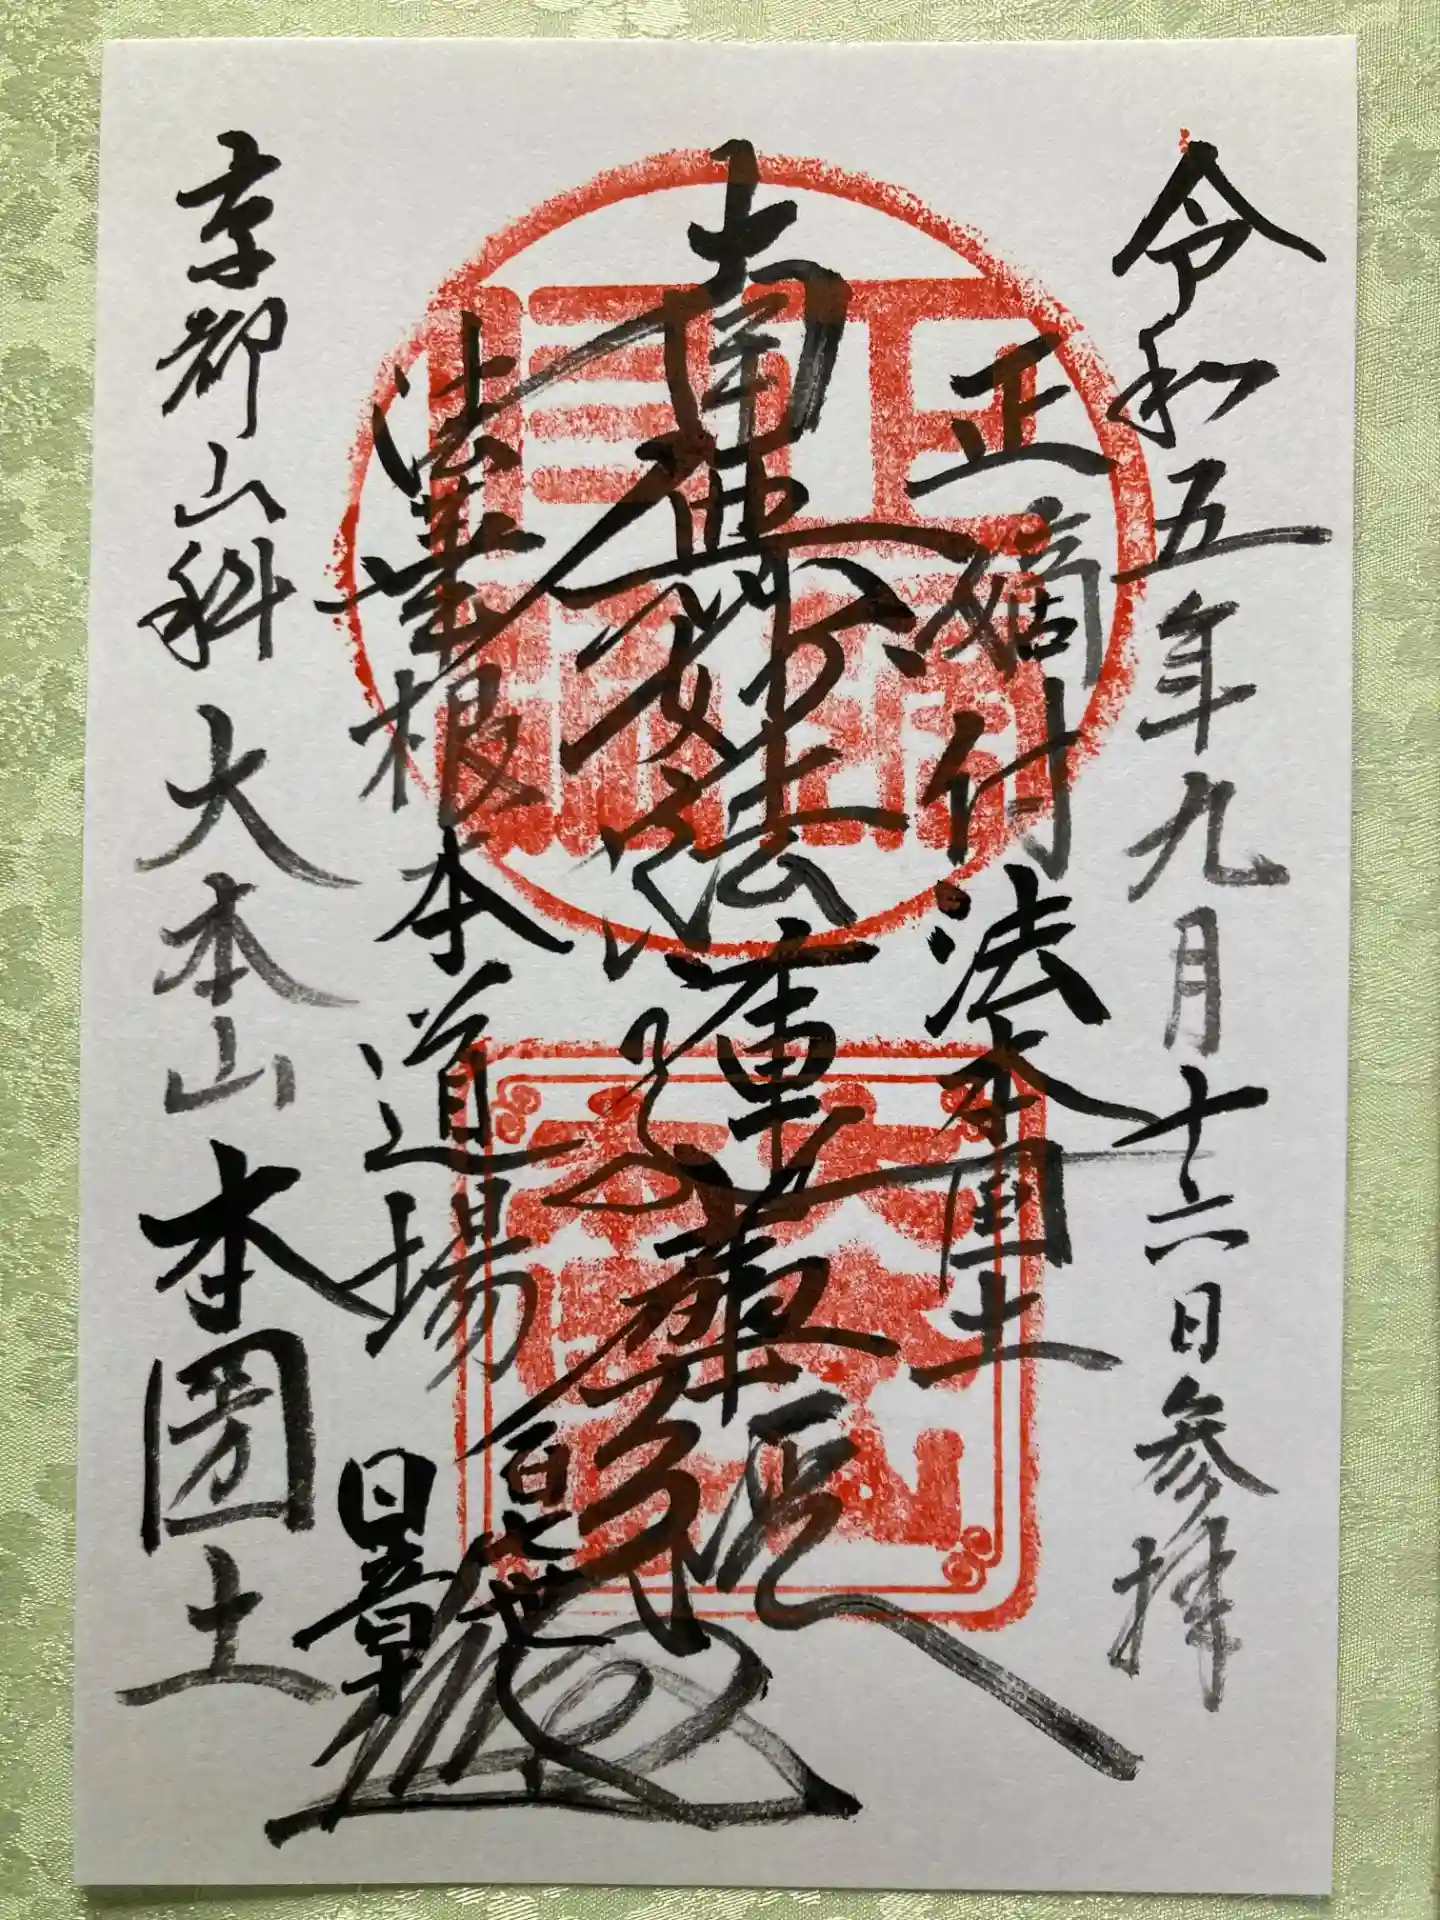 令和五年九月十六日参拝
正嫡付法本国土
南無妙法蓮華経
法華根本道場
百七世
日章
京都山科 大本山 本圀土